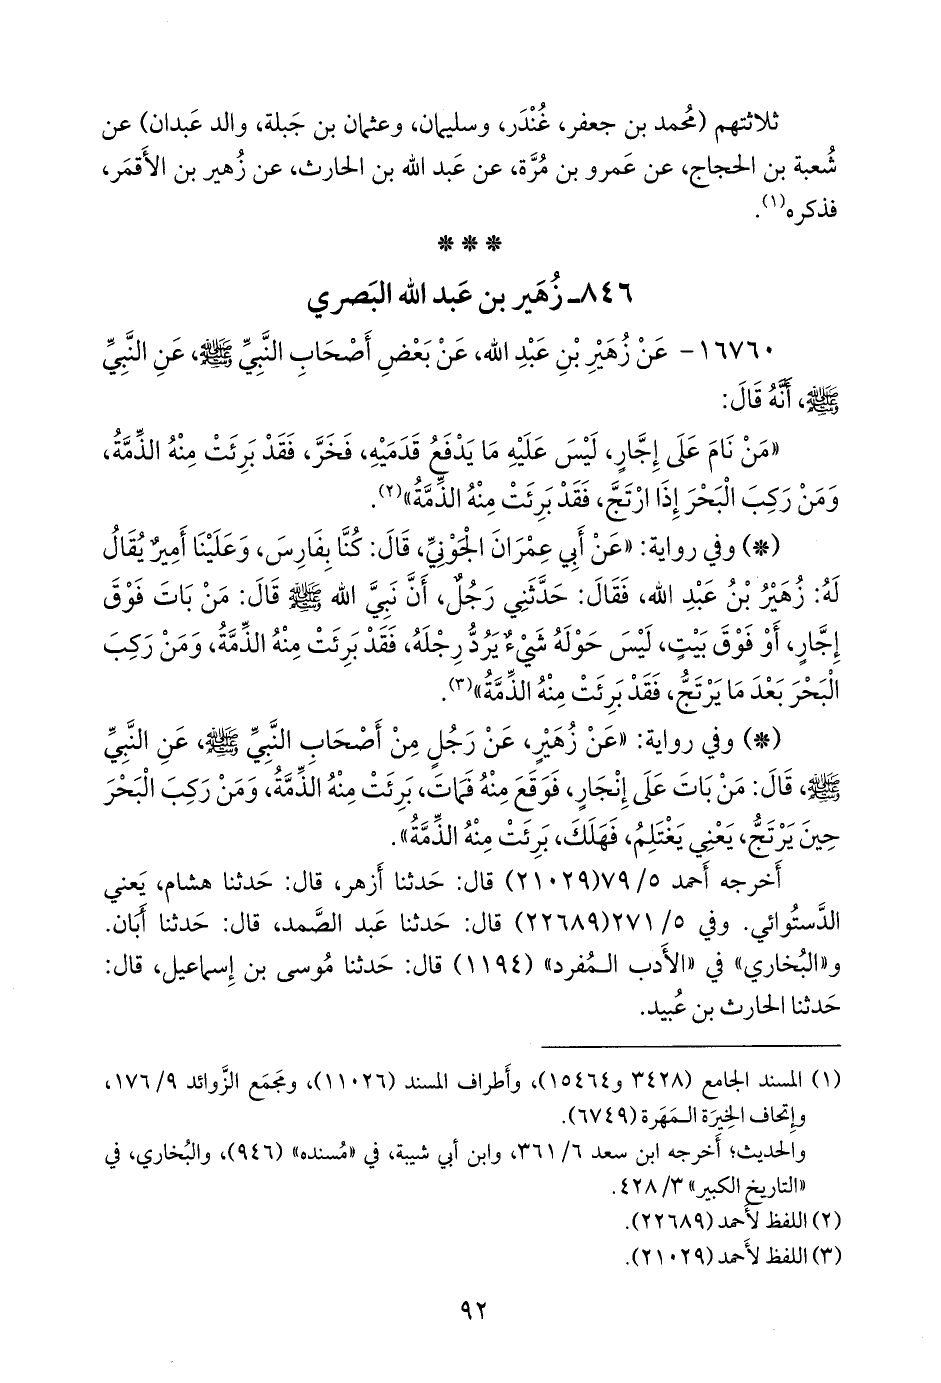 ثلاثتهم (مُحمد بن جعفر، غُنْدَر، وسليمان، وعثمان بن جَبلة، والد عَبدان) عن
شُعبة بن الحجاج، عن عَمرو بن مُرَّة، عن عَبد الله بن الحارث، عن زُهير بن الأَقمَر،
فذكره(١).
* * *
٨٤٦- زُهَير بن عَبد الله البَصري
١٦٧٦٠- عَنْ زُهَيْرِ بْنِ عَبْدِ الله، عَنْ بَعْضِ أَصْحَابِ النَّبِيِّ ﷺ، عَنِ النَّبِيِّ
ﷺ، أَنَّهُ قَالَ:
«مَنْ نَامَ عَلَى إِجَّارٍ، لَيْسَ عَلَيْهِ مَا يَدْفَعُ قَدَمَيْهِ، فَخَرَّ، فَقَدْ بَرِئَتْ مِنْهُ الذِّمَّةُ،
وَمَنْ رَكِبَ الْبَحْرَ إِذَا ارْتَجَّ، فَقَدْ بَرِئَتْ مِنْهُ الذِّمَّةُ»(٢).
(*) وفي رواية: «عَنْ أَبِي عِمْرَانَ الْجَوْنِيِّ، قَالَ: كُنَّا بِفَارِسَ، وَعَلَيْنَا أَمِيرٌ يُقَالُ
لَهُ: زُهَيْرُ بْنُ عَبْدِ الله، فَقَالَ: حَدَّثَنِي رَجُلٌ، أَنَّ نَبِيَّ الله ﷺ قَالَ: مَنْ بَاتَ فَوْقَ
إِجَّارٍ، أَوْ فَوْقَ بَيْتٍ، لَيْسَ حَوْلَهُ شَيْءٌ يَرُدُّ رِجْلَهُ، فَقَدْ بَرِئَتْ مِنْهُ الذِّمَّةُ، وَمَنْ رَكِبَ
الْبَحْرَ بَعْدَ مَا يَرْتَجُّ، فَقَدْ بَرِئَتْ مِنْهُ الذِّمَّةُ»(٣).
(*) وفي رواية: «عَنْ زُهَيْرٍ، عَنْ رَجُلٍ مِنْ أَصْحَابِ النَّبِيِّ ﷺ، عَنِ النَّبِيِّ
ﷺ، قَالَ: مَنْ بَاتَ عَلَى إِنْجَارٍ، فَوَقَعَ مِنْهُ فَمَاتَ، بَرِئَتْ مِنْهُ الذِّمَّةُ، وَمَنْ رَكِبَ الْبَحْرَ
حِينَ يَرْتَجُّ، يَعْنِي يَغْتَلِمُ، فَهَلَكَ، بَرِئَتْ مِنْهُ الذِّمَّةُ».
أَخرجه أَحمد ٥/ ٧٩(٢١٠٢٩) قال: حَدثنا أَزهر، قال: حَدثنا هشام، يَعني
الدَّستُوائي. وفي ٥/ ٢٧١(٢٢٦٨٩) قال: حَدثنا عَبد الصَّمد، قال: حَدثنا أَبَان.
و«البُخاري» في «الأَدب المُفرد» (١١٩٤) قال: حَدثنا مُوسى بن إِسماعيل، قال:
حَدثنا الحارث بن عُبيد.
(١) المسند الجامع (٣٤٢٨ و١٥٤٦٤)، وأَطراف المسند (١١٠٢٦)، ومَجمَع الزَّوائد ٩/ ١٧٦،
وإِتحاف الخِيرَة المَهَرة (٦٧٤٩).
والحديث؛ أَخرجه ابن سعد ٦/ ٣٦١، وابن أبي شيبة، في «مُسنده» (٩٤٦)، والبُخاري، في
«التاريخ الكبير» ٣/ ٤٢٨.
(٢) اللفظ لأَحمد (٢٢٦٨٩).
(٣) اللفظ لأَحمد (٢١٠٢٩).
٩٢